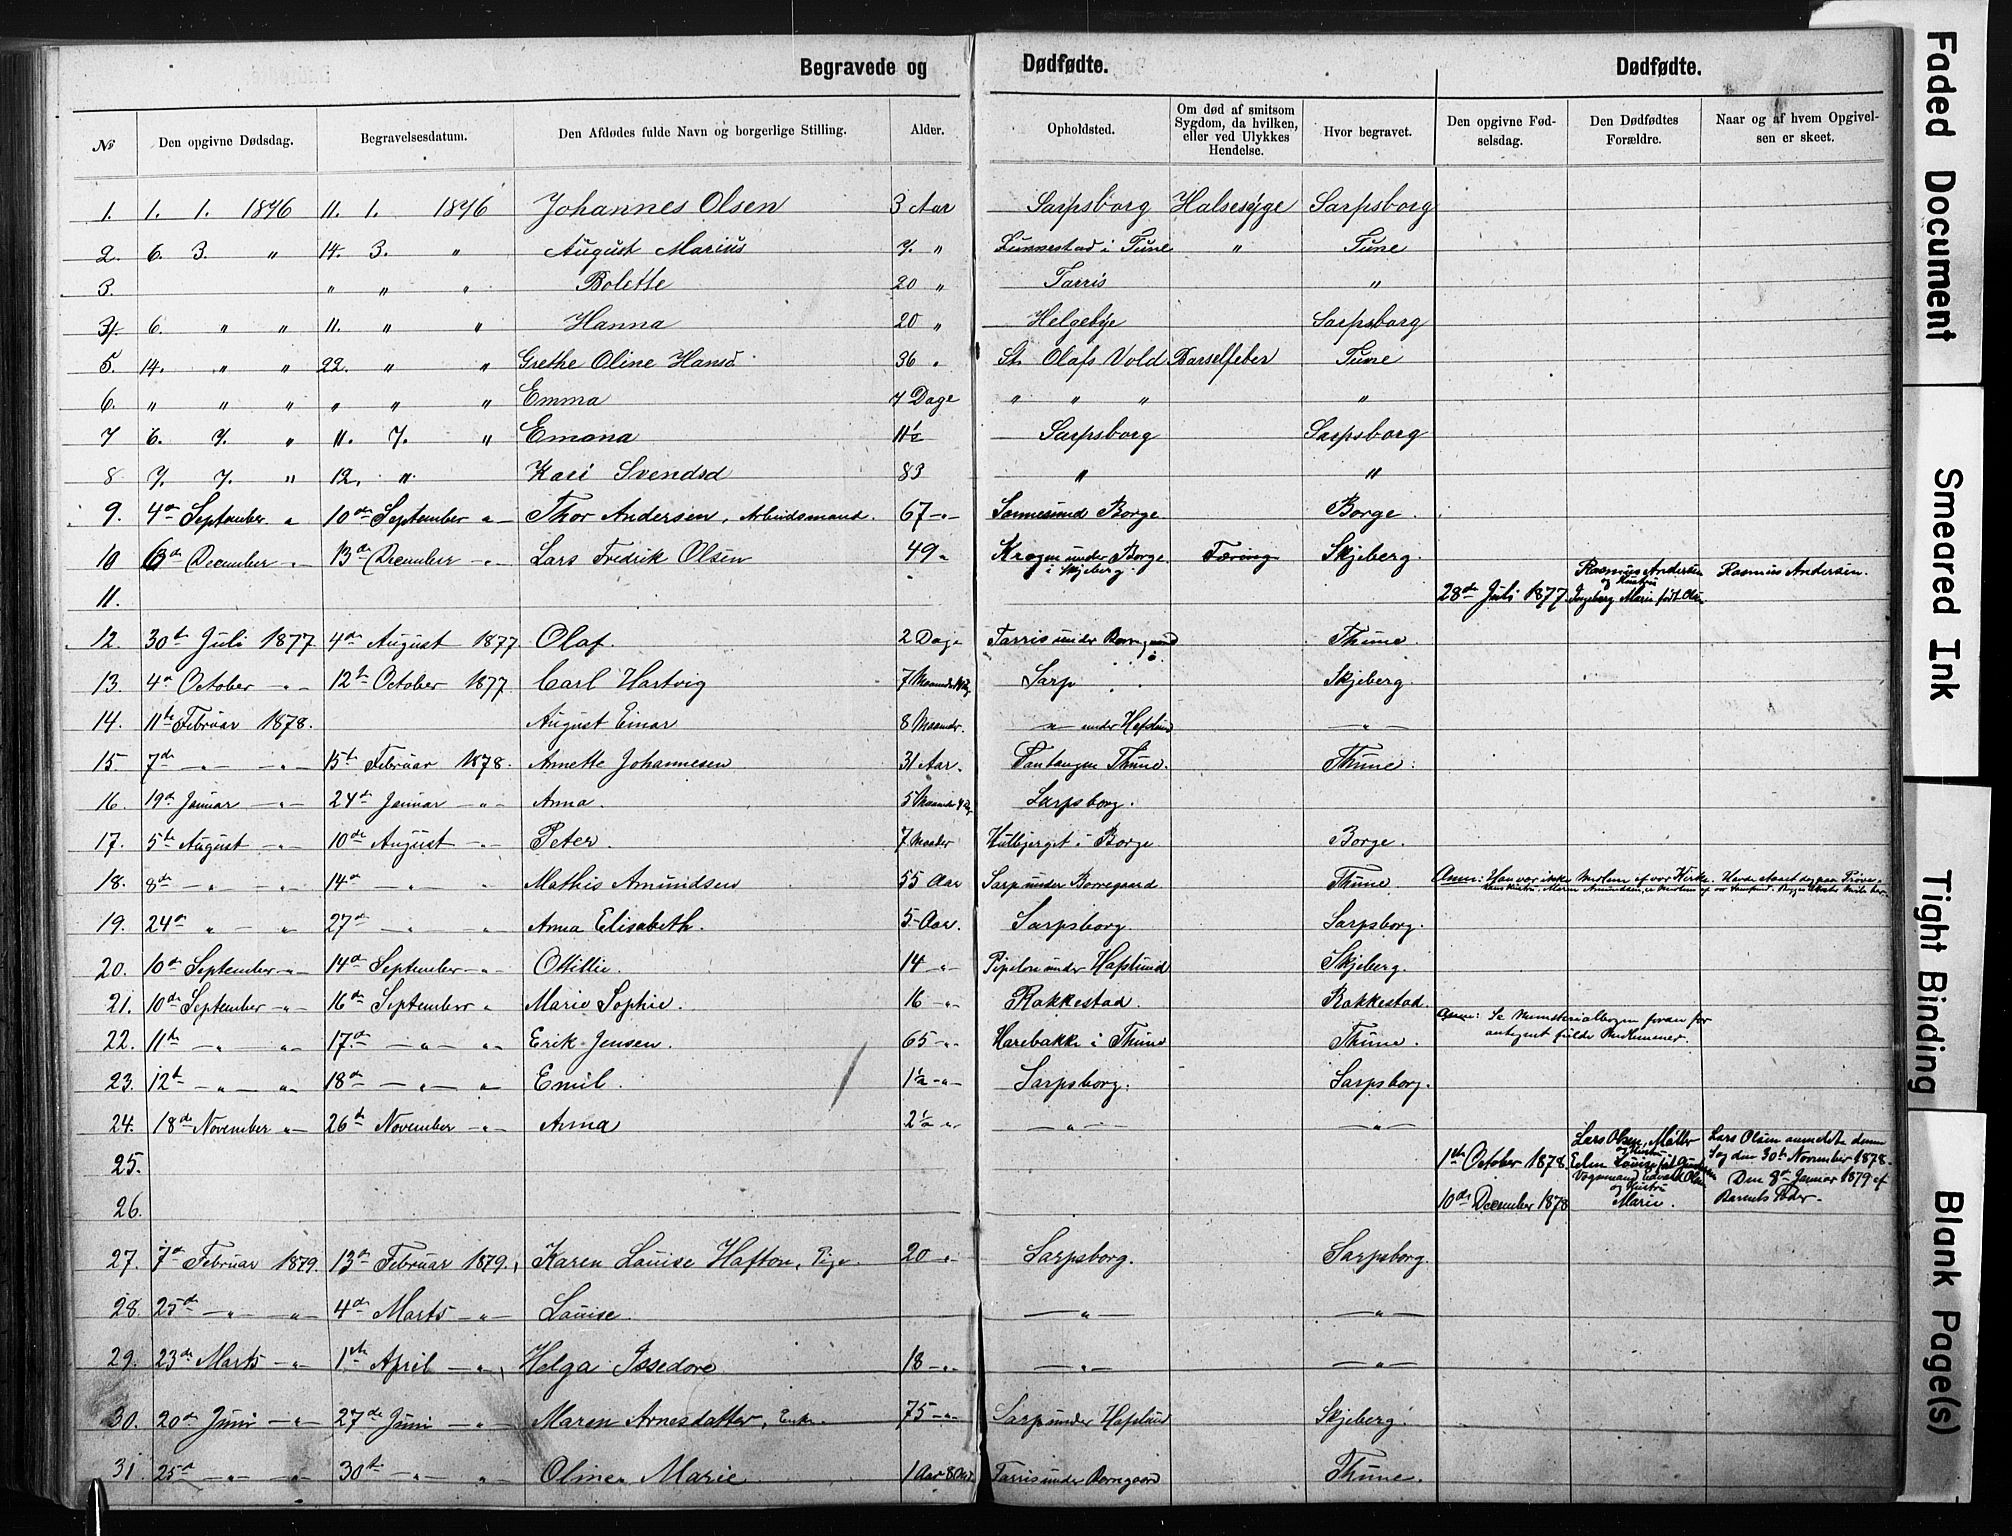 Begravede og Dødfødte. Dødfødte.
№ Den opgivne Dødsdag. Begravelsesdatum. Den Afdødes fulde Navn og borgerlige Stilling. Alder. Opholdsted. Om død af smitsom Sygdom, da hvilken, eller ved Ulykkes Hendelse. Hvor begravet. Den opgivne Fødselsdag. Den Dødfødtes Forældre. Naar og af hvem Opgivelsen er skeet.
1. 1. 1. 1876 11. 1. 1876 Johannes Olsen 3 Aar Sarpsborg Halsesyge Sarpsborg
2. 6. 3. " 14. 3. " August Marius 7. " Lunnestad i Tune " Tune
3. " " " Bolette 20 " Tarris "
4. 6. " " 11. " " Hanna 20 " Helgebye Sarpsborg
5. 14. " " 22. " " Grethe Oline Hansd 36 " St. Olafs Vold Barselfeber Tune
6. " " " " " " Emma 7 Dage " " " "
7 6. 7. " 11. 7. " Emana 11½ Sarpsborg Sarpsborg
8 7. 7. " 12. " Kari Svendsd 83 " "
9. 4de September " 10de September -"- Thor Andersen, Arbeidsmand. 67 -"- Sannesund Borge Borge.
10 6de December -"- 13de December -"- Lars Fredrik Olsen 49 " Krogen under Borge i Skjeberg. Skjeberg.
11. 28de Juli 1877. Rasmus Andersen og Hustru Ingeborg Marie født Olsen Rasmus Andersen.
12. 30te Juli 1877 4de August 1877. Olaf. 2 Dage Tarris under Borregaard Thune.
13. 4de October -"- 12te October 1877 Carl Hartvig 7 Maaneder Sarp Skjeberg
14. 11te Februar 1878. August Einar 8 Maaneder. -"- under Hafslund -"-
15. 7de -"- -"- 15te Februar 1878. Annette Johannesen 31 Aar. Thune. Thune.
16. 19de Januar -"- 24de Januar -"- Anna. 5 Maaneder Sarpsborg.
17. 5te August -"- 10de August -"- Peter. 7 Maader i Borge Borge.
18. 8de -"- -"- 14de -"- " Mathis Amundsen 55 Aar Sarp under Borregaard Thune. Anm: Han var ikke Medlem af vor Kirke.
19. 24de " -"- 27de -"- -"- Anna Elisabeth. 5 Aar. Sarpsborg Sarpsborg.
20. 10de September -"- 14de September -"- Ottillie. 14 -"- under Hafslund Skjeberg.
21. 10de September -"- 16de September " Marie Sophie. 16 -"- Rakkestad. Rakkestad.
22. 11te -"- -"- 17de -"- -"- Erik Jensen. 65 -"- Harebakke i Thune Thune. Anm: Se Ministerialbogen foran for
23. 12te -"- -"- 18de -"- " Emil. 1½ -"- Sarpsborg. Sarpsborg.
24. 18de November -"- 26de November -"- Anna 2½ " -"- -"-
25. 1ste October 1878 Lars Olsen, Møller og Hustru Lars Olsen anmeldte denne Sag den 30te November 1878.
26. 10de December 1878 Vognmand Edvard Olsen og Hustru Marie. Den 8de Januar 1879 af Barnets Fader.
27. 7de Februar 1879. 13de Februar 1879. Karen Louise Hafton, Pige. 20 -"- Sarpsborg. Sarpsborg.
28. 25de -"- " 4de Marts -"- Louise. -"- -"-
29. 23de Marts -"- 1ste April -"- Helga Issedore 18 -"- -"- -"-
30. 20de Juni -"- 27de Juni -"- Maren Arnesdatter, Enke. 75 -"- Sarp under Hafslund Skjeberg.
31. 25de -"- -"- 30te -"- " Oline Marie 1 Aar Tarris under Borregaard Thune.
Faded Document
Smeared Ink
Tight Binding
Blank Page(s)